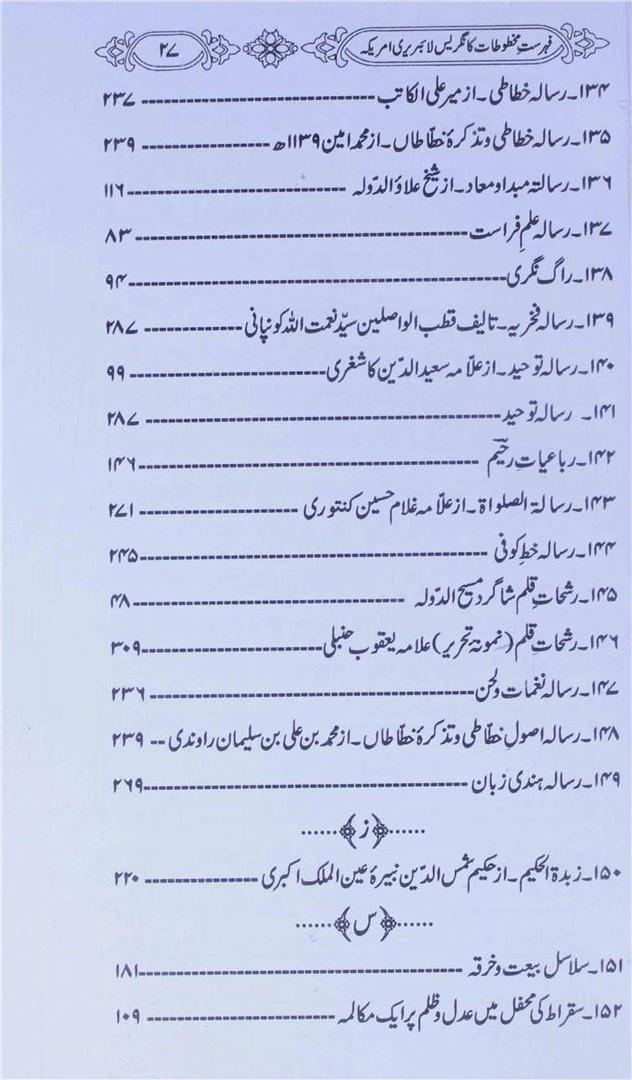 فہرستِ مخطوطات کانگریس لائبریری امریکہ ۲۷
۱۳۴۔ رسالہ خطاطی۔ از میر علی الکاتب ------------------------ ۲۳۷
۱۳۵۔ رسالہ خطاطی و تذکرۂ خطّاطاں۔ از محمد امین ۱۱۳۹ھ ------------ ۲۳۹
۱۳۶۔ رسالتہ مبداو معاد۔ از شیخ علاؤ الدّولہ ------------------------ ۱۱۶
۱۳۷۔ رسالہ علمِ فراست ------------------------------------ ۸۳
۱۳۸۔ راگ نگری ---------------------------------------- ۹۴
۱۳۹۔ رسالہ فخریہ۔ تالیف قطب الواصلین سیّد نعمت اللہ کونپانی ---------- ۲۸۷
۱۴۰۔ رسالہ توحید۔ از علّامہ سعید الدّین کاشغری -------------------- ۹۹
۱۴۱۔ رسالہ توحید ------------------------------------ ۲۸۷
۱۴۲۔ رباعیاتِ رحیم ---------------------------------- ۱۴۶
۱۴۳۔ رسالۃ الصلواۃ۔ از علّامہ غلام حسین کنتوری ---------------- ۲۷۱
۱۴۴۔ رسالہ خطِ کوفی ----------------------------------- ۲۴۵
۱۴۵۔ رشحاتِ قلم شاگرد مسیح الدّولہ --------------------------- ۴۸
۱۴۶۔ رشحاتِ قلم (نمونۂ تحریر) علامہ یعقوب حنبلی ------------------ ۳۰۹
۱۴۷۔ رسالہ نغمات و لحن --------------------------------- ۲۳۶
۱۴۸۔ رسالہ اصولِ خطّاطی و تذکرۂ خطّاطاں۔ از محمد بن علی بن سلیمان راوندی -- ۲۳۹
۱۴۹۔ رسالہ ہندی زبان --------------------------------- ۲۶۹
......﴿ز﴾......
۱۵۰۔ زبدۃ الحکیم۔ از حکیم شمس الدّین نبیرۂ عین الملک اکبری ------------ ۲۲۰
......﴿س﴾......
۱۵۱۔ سلاسل بیعت و خرقہ --------------------------------- ۱۸۱
۱۵۲۔ سقراط کی محفل میں عدل و ظلم پر ایک مکالمہ -------------------- ۱۰۹